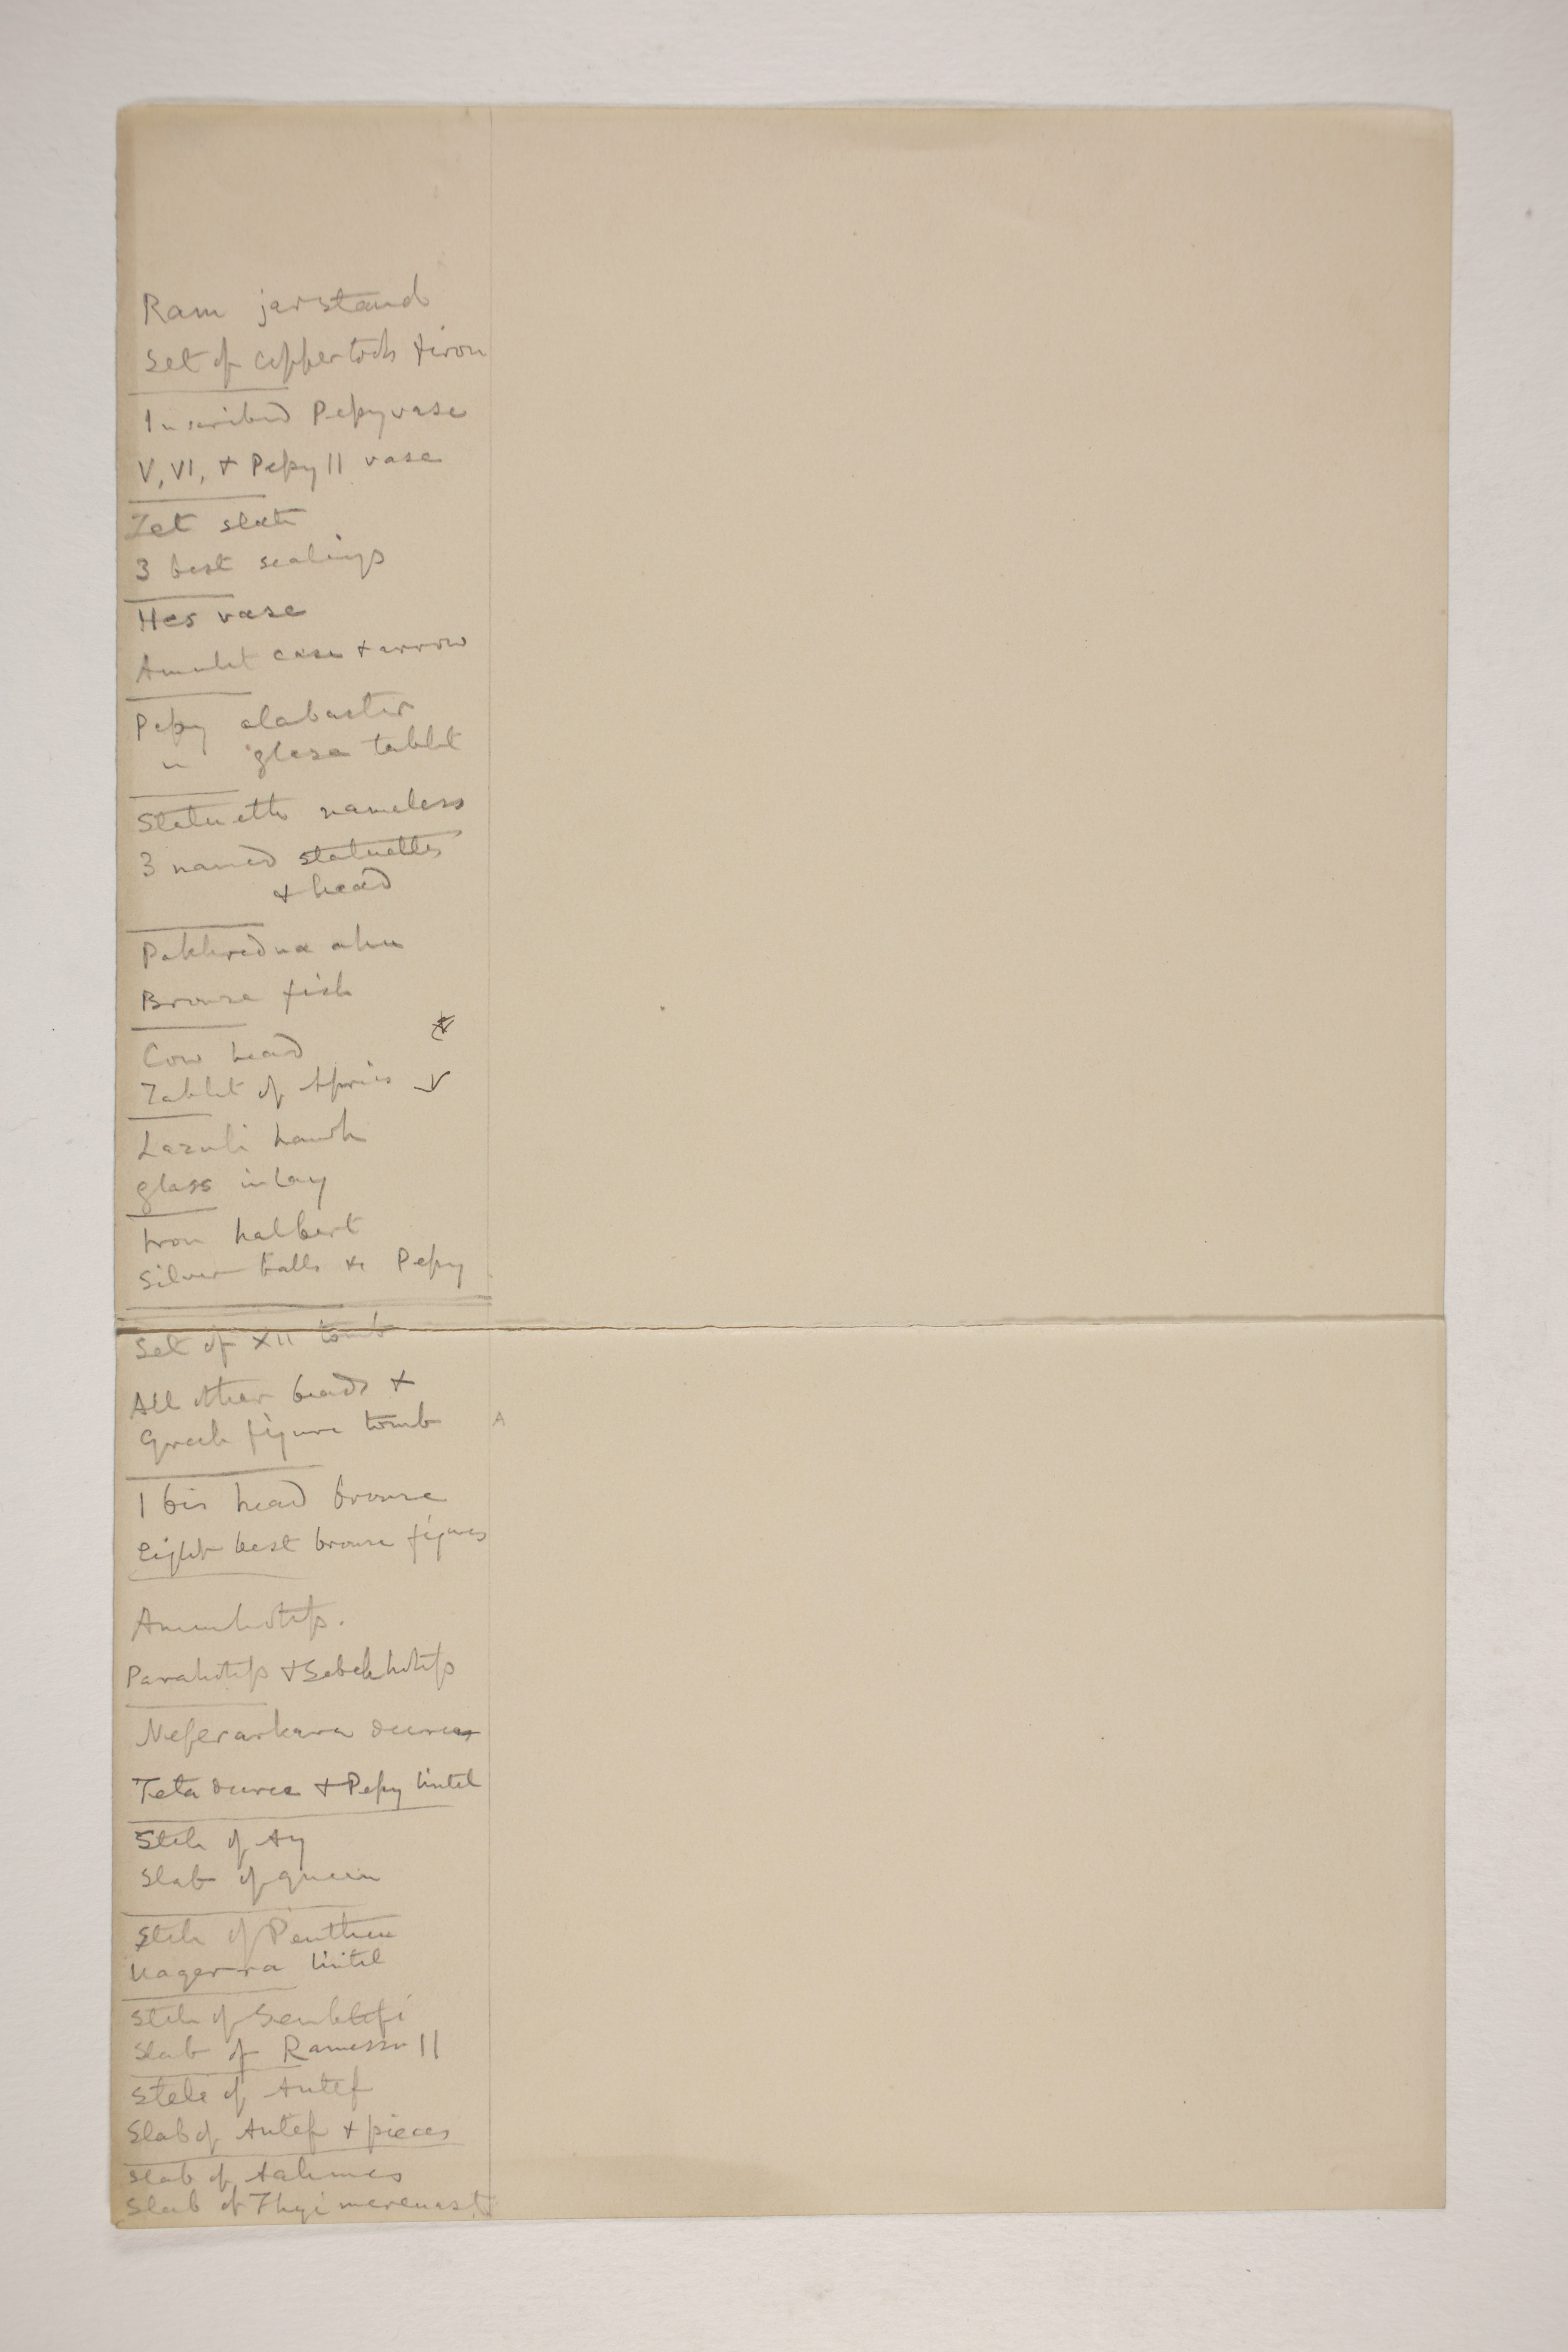 Ram jar stand
Set of copper tools & iron
Inscribed Pepy vase
V, VI, & Pepy II vase
Zet slate
3 best sealings
Hes vase
Amulet case & arrow
Pepy alabaster
" glaze tablet
Statuette nameless
3 named statuettes
& head
Bronze fish
Cow head
Tablet of Apries
Lazuli hawk
glass inlay
Iron halbert
Silver balls & Pepy
Set of XII tomb
All other beads &
Greek figure tomb
A
Ibis head bronze
Eight best bronze figures
Amenhotep.
Parahotep & Sebekhotep
Neferarkara decree
Teta decree & Pepy lintel
Stele of Ay
Slab of queen
Stele of Penthu
lintel
Stele of
Slab of Ramessu II
Stele of Antef
Slab of Antef & pieces
Slab of Aahmes
Slab of